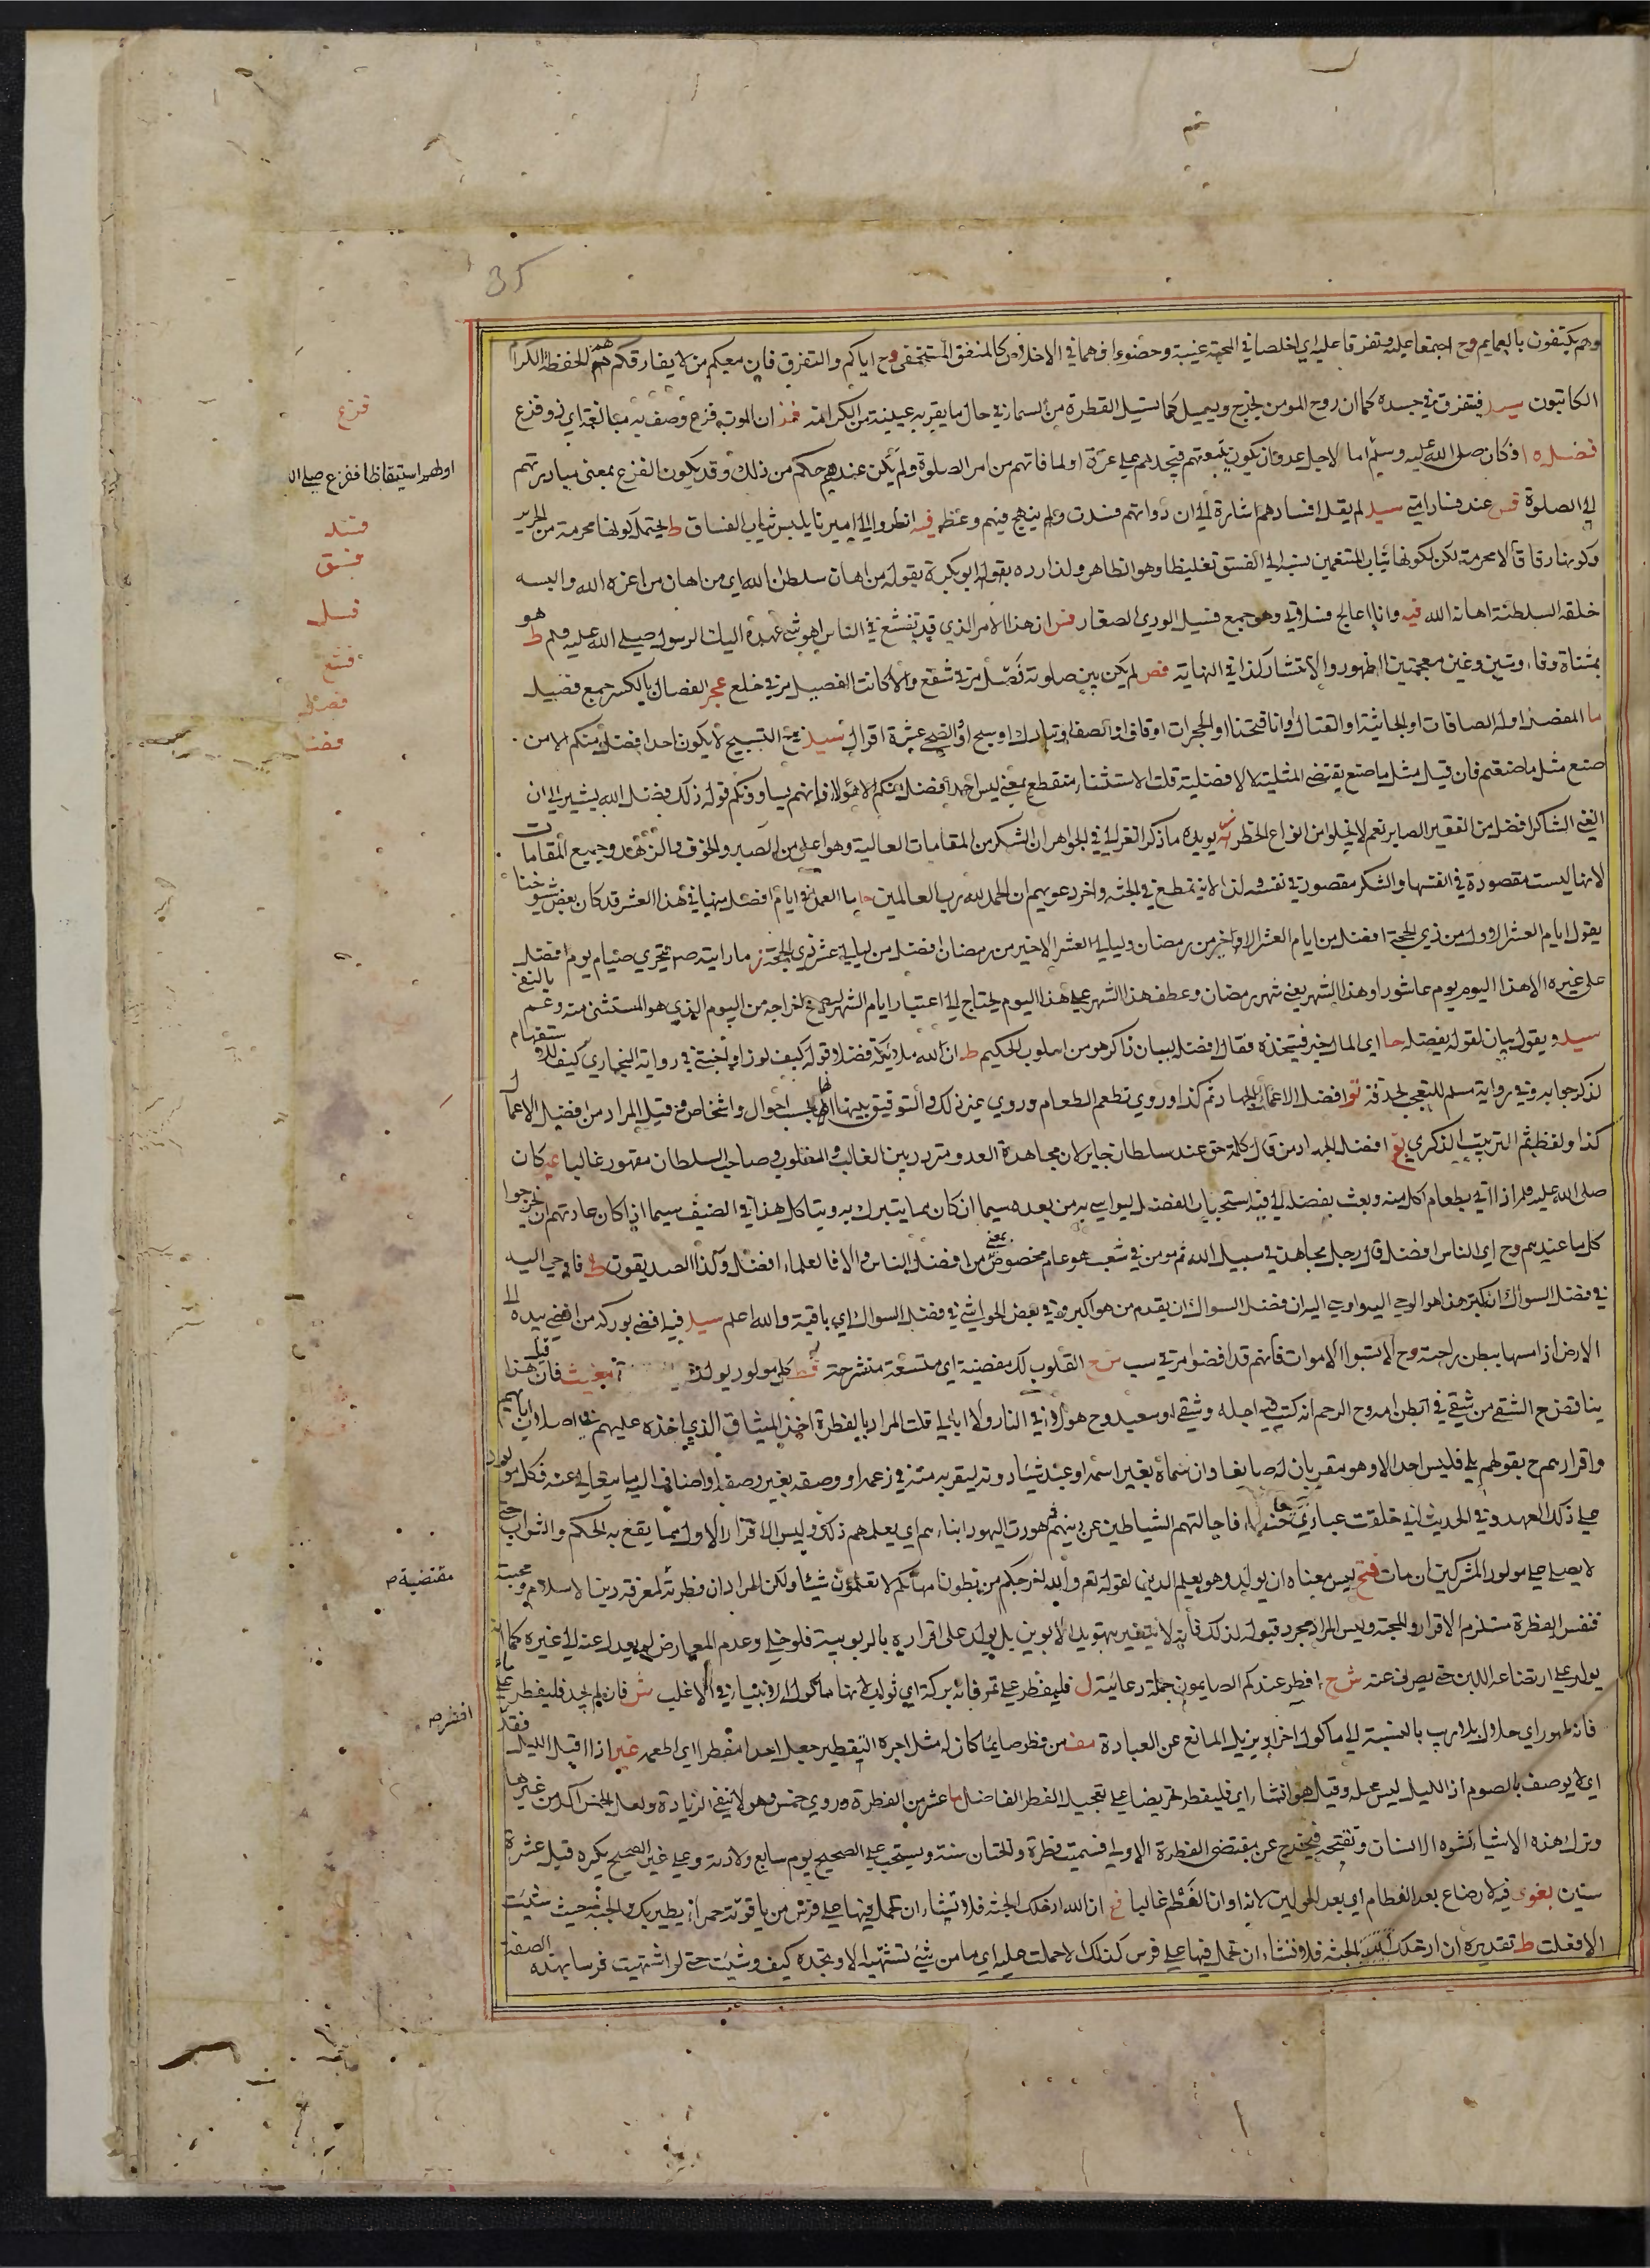 35
وهم يكتفون بالعمايم وح اجتمعا عليه وتفرقا عليه اي اخلصا في المحبة غيبة وحضورا في الاخلاص كالمنفق المستخفي وح اياكم والتفرق فان معكم من لا يفارقكم هم الحفظة الكرام
الكاتبون سيد فتفرق في جسده كما ان روح المومن تخرج وتسيل كما تسيل القطرة من السماء في حال ما يقر به عينيه من الكرامة فمذ ان الموت فزع وصف به مبالغة اي ذو فزع
فضله او كان صلى الله عليه وسلم اما لاجل عدو ان يكون يتبعهم فيجدهم على غرة او لما فاتهم من امر الصلوة ولم يكن عندهم حكم من ذلك وقد يكون الفزع بمعنى مبادرتهم
الى الصلوة عند سيد لم يقل افسادهم اشارة الى ان ذواتهم فسدت ولم ينهج فيهم وعظ فيه انظروا الى اميرنا يلبس ثياب الفساق ط يحتمل كونها محرمة من الحرير
وكونها رقاقا لا محرمة لكن لكونها ثياب المتنعمين نسبه الى الفسق تغليظا وهو الظاهر ولذا رده بقوله ابو بكرة بقوله من اهان سلطان الله اي من اهان من اعزه الله والبسه
خلقه السلطنة اهانه الله فيه وانا اعالج فسلاني وهو جمع فسيل الودي الصغار ان هذا الامر الذي قد تفشغ في الناس اهو شي عهده اليك الرسول صلى الله عليه وسلم هو ط
بمثناة وفاء وشين وغين معجمتين الظهور والانتشار كذا في النهاية فص لم يكن بين صلوته فصل من في شفع والا كانت الفصيل من في خلع عجر الفصال بالكسر جمع فصيل
ما المفصل اوله الصافات او الجاثية او القتال او انا فتحنا او الحجرات او قاف او الصف او تبارك او سبح او الضحى عشرة اقوال سيد التسبيح لا يكون احد افضل منكم الا من
صنع مثل ما صنعتم فان قيل مثل ما صنع يقتضي المثلية لا الافضلية قلت الاستثناء منقطع بمعنى ليس احد افضل منكم الا هؤلاء فانهم يساوونكم قوله ذلك فضل الله يشير الى ان
الغني الشاكر افضل من الفقير الصابر نعم لا يخلوا من انواع الخطر يويده ما ذكر الغزالي في الجواهر ان الشكر من المقامات العالية وهو اعلى من الصبر والخوف والزهد وجميع المقامات
لانها ليست مقصودة في انفسها والشكر مقصود في نفسه ولذا لا ينقطع في الجنة واخر دعويهم ان الحمد لله رب العالمين ما العمل في ايام افضل منها في هذا العشر قد كان بعض شيوخنا
يقول ايام العشر الاول من ذي الحجة افضل من ايام العشر الاواخر من رمضان وليالي العشر الاخير من رمضان افضل من ليالي عشر ذي الحجة ما رايته صه يتحرى صيام يوم افضل
على غيره الا هذا اليوم يوم عاشورا وهذا الشهر يعني شهر رمضان وعطف هذا الشهر على هذا اليوم يحتاج الى اعتبار ايام الشهر ليصح اخراجه من اليوم الذي هو المستثنى منه
سيد ويقول بيان لقوله بفضله اي المال خير فنتخذه فقال افضله لسان ذاكر هو من اسلوب الحكيم ط ان لله ملائكة فضلا وقوله كيف لو راو جنتي في رواية البخاري كيف للاستفهام
لذكر جوابه وفي رواية مسلم للتعجب لحذفه افضل الاعمال الجهاد ثم كذا وروي تطعم الطعام وروي غير ذلك والتوفيق بينها انها بحسب احوال واشخاص وقيل المراد من افضل الاعمال
كذا ولفظ ثم الترتيب الذكري افضل الجهاد من قال كلمة حق عند سلطان جاير لان مجاهدة العدو متردد بين الغالب والمغلوب وصاحب السلطان مقهور غالبا كان
صلى الله عليه وسلم اذا اتي بطعام اكل منه وبعث بفضله الي فيه استحباب الفضل ليواسي به من بعده سيما ان كان مما يتبرك به ويتاكد هذا في الضيف سيما اذا كان عادتهم ان يخرجوا
كل ما عندهم وح اي الناس افضل قال رجل مجاهد في سبيل الله ثم مومن في شعب هو عام مخصوص بمعنى من افضل الناس والا فالعلماء افضل وكذا الصديقون ط فاوحي اليه
في فضل السواك ان كبر هذا هو الوحي اليه اوحي اليه ان فضل السواك ان يقدم من هو اكبر وفي بعض الحواشي في فضل السواك اي باقيه والله اعلم سيد فيه افضى بوركه من افضى بيده الى
الارض اذا مسها ببطن راحته وح لا تسبوا الاموات فانهم قد افضوا مر في سب شرح القلوب لك مفضية اي متسعة منشرحة كل مولود يولد فان قيل هذا
يناقض ح الشقي من شقي في بطن امه وح الرحم انه كتب فيه اجله وشقي او سعيد وح هؤلاء في النار ولا ابالي قلت المراد بالفطرة اخذ الميثاق الذي اخذه عليهم في اصلاب ابائهم
واقرارهم ح بقولهم بلى فليس احد الا وهو مقر بان له صانعا وان سماه بغير اسمه او عبد شيئا دونه ليقربه منه في زعمه او وصفه بغير وصفه او اضاف اليه ما يتعالى عنه فكل مولود
على ذلك العهد وفي الحديث اني خلقت عبادي حنفاء فاجالتهم الشياطين عن دينهم ثم هودت اليهود ابناءهم اي يعلمهم ذلك وليس الاقرار الاول مما يقع به الحكم والثواب حتى
لا يصلى على مولود المشركين ان مات فتح ليس معناه ان يولد وهو يعلم الدين لقوله تعه والله اخرجكم من بطون امهاتكم لا تعلمون شيئا ولكن المراد ان فطرته لمعرفة دين الاسلام ومحبته
فنفس الفطرة مستلزم الاقرار والمحبة وليس المراد مجرد قبوله لذلك فانه لا يتغير بتهويد الابوين بل يولد على اقراره بالربوبية فلو خلي وعدم المعارض لم يعدل عنه الى غيره كما انه
يولد على ارتضاعه اللبن حتى يصرف عنه ش ح افطر عندكم الصايمون جملة دعائية ل فليفطر على تمر فانه بركة اي ثواب لانها ماكول الانبياء في الاغلب ش فان لم يجد فليفطر على ماء
فانه طهور اي حلال بلا ريب بالنسبة الى ماكول اخر او يزيل المانع عن العبادة مف من فطر صايما كان له مثل اجره التفطير جعل احد مفطرا اي اطعمه غير اذا اقبل الليل فقد
اي لا يوصف بالصوم اذ الليل ليس محله وقيل هو انشاء اي فليفطر تحريضا على تعجيل الفطر الفاضل ما عشر من الفطرة وروي خمس وهو لا ينفي الزيادة ولعل الخمس اكد من غيرها
وترك هذه الاشياء تشوه الانسان وتقبحه فيخرج عن مقتضى الفطرة الاولى فسميت فطرة والختان سنة ويستحب على الصحيح يوم سابع ولادته وعلى غير الصحيح يكره قبل عشرة
سنين بغوي فيه لا رضاع بعد الفطام اي بعد الحولين لانه اوان الفطم غالبا فح ان الله ادخلك الجنة فلا تشاء ان تحمل فيها على فرس من ياقوتة حمراء يطير بك في الجنة حيث شئت
الا فعلت ط تقديره ان ادخلك الله الجنة فلا تشاء ان تحمل فيها على فرس كذلك الا حملت عليه اي ما من شي تشتهيه الا وتجده كيف وشئت حتى لو اشتهيت فرسا بهذه الصفة
فزع
اولهم استيقاظا ففزع صلى الله
فسد
فسق
فسل
فشغ
فصل
فضا
مقتضية ص
افطر ص